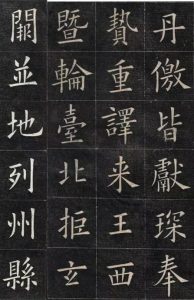 丹徼皆獻琛奉
贄重譯来王西
暨輪臺北拒玄
闕並地列州縣